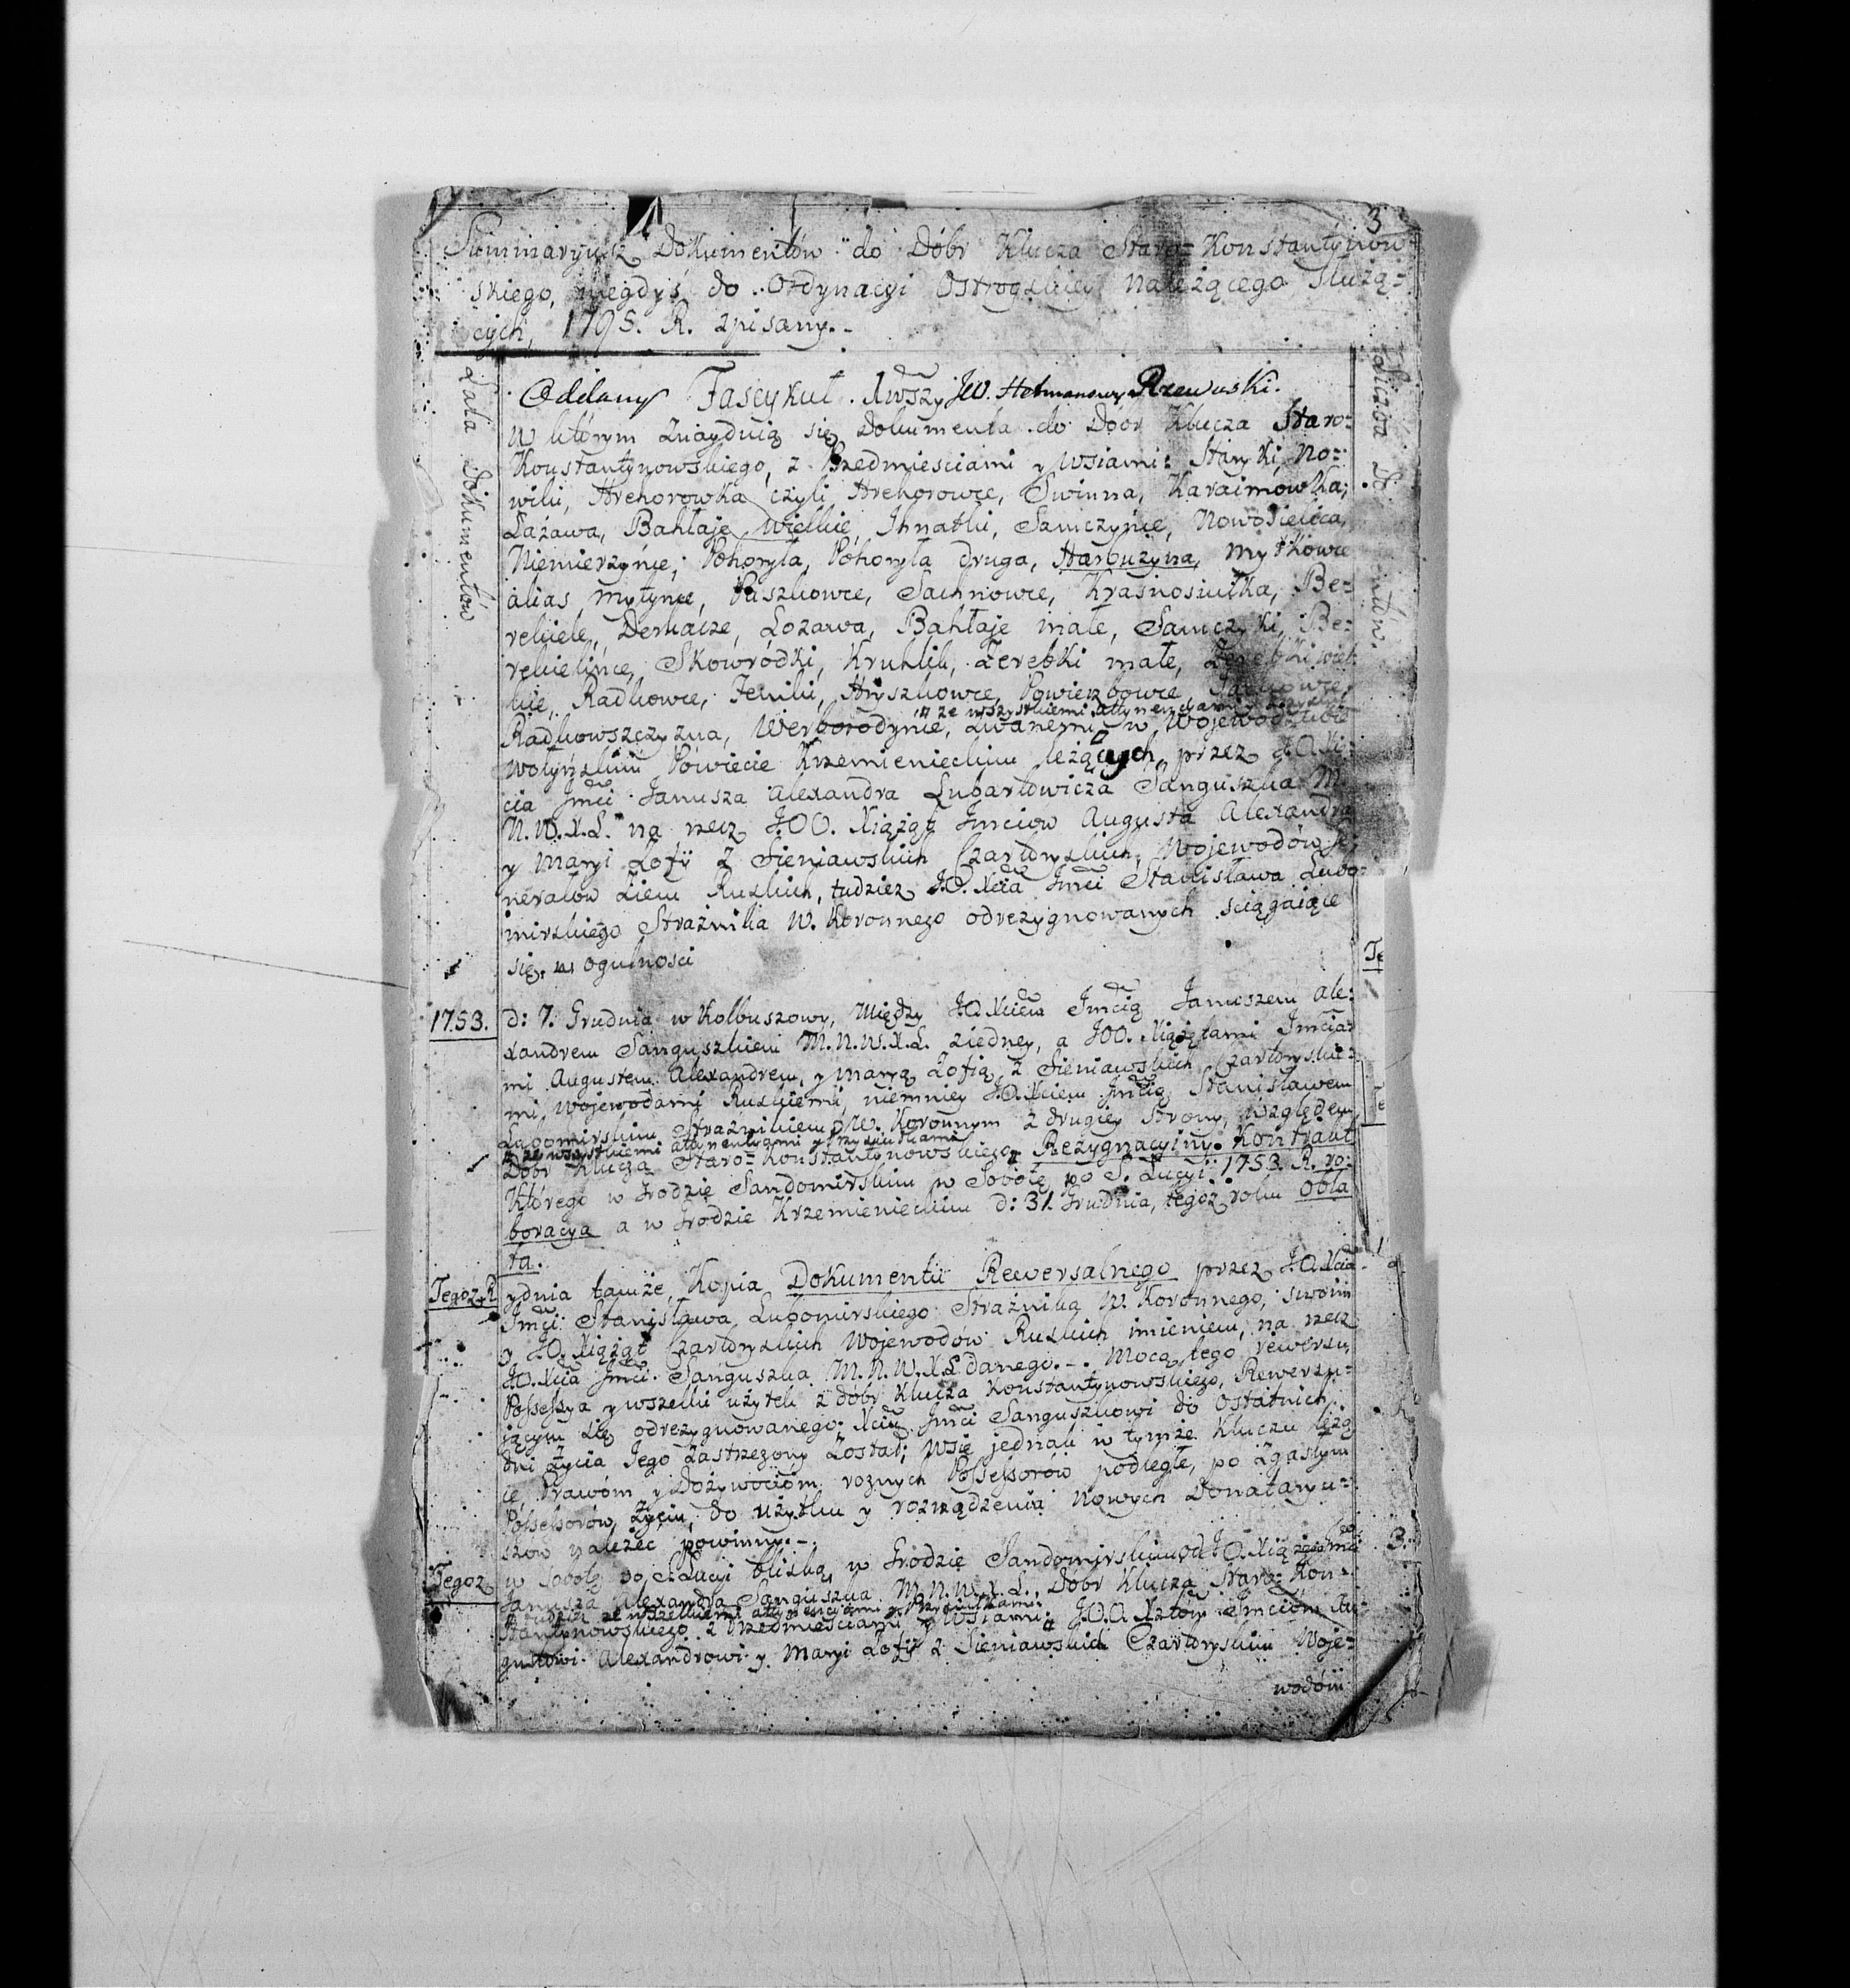 3
Summaryusz Dokumentów do Dóbr Klucza Staro=Konstantynow
skiego, niegdyś do Ordynacyi Ostrogskiey należącego Służą=
cych, 1795. R. zpisany.-
Lata Dokumentów
Liczba
Oddany Fascykuł 1wszy JW. Hetmanowy Rzewuski.
W którym znaydują się Dokumenta do Dóbr Klucza Staro=
Konstantynowskiego, z Przedmieściami y Wsiami: Stary ki, No=
wiki, Hrehorowka czyli Hrehorowce, Swinna, Karaimowka,
Łażawa, Bahłaje Wielkie, Ihnatki, Samczyńce, Nowosielica,
Niemierzyńce, Pohoryła, Pohoryła druga, Harbużyna, Mytkowce
alias Mytynce, Paszkowce, Sachnowce, Krasnosiułka, Be=
rehele, Derkacze, Łozawa, Bahłaje małe, Samczyki, Be=
rehelińce, Skowródki, Kruhlik, Zerebki małe, Zerebki wiel
kie, Radkowce, Hryszkowce, Powierzbowce,
# ze wszystkiemi attynencyami
Radkowszczyzna, Werborodyńce, zwanemi w Województwie
Wołyńskim Powiecie Krzemienieckim leżących, przez J.O. Xi
cia Jmći Janusza Alexandra Lubartowicza Sanguszka M.
N. W. X. L. na rzecz J.OO. Xiążąt Jmciow Augusta Alexandra
y Maryi Zofÿ z Sieniawskich Czartoryskich, Wojewodów Je
nerałów Ziem Ruskich, tudzież J.O. Xcia Jmći Stanisława Lubo=
mirskiego Strażnika W. Koronnego odrezygnowanych ściągaiące
się, w ogulności
1753.
d: 7. Grudnia w Kolbuszowy, Między J.O. Xciem Jmcią Januszem Ale=
xandrem Sanguszkiem M. N. W. X. L. ziedney, a J.OO. Xiążętami Jmcia=
mi Augustem Alexandrem, y Maryą Zofią, z Sieniawskich Czartoryskie=
mi, Wojewodami Ruskiemi, niemniey J.O. Xciem Jmcią, Stanisławem
Lubomirskim Strażnikiem W. Koronnym z drugiey strony, względem
# ze wszystkiemi attynencyami y Przysiułkami
Dóbr Klucza Staro=Konstantynowskiego # Rezygnacyiny Kontrakt
Którego w Grodzie Sandomirskim w Sobotę po S. Lucyi 1753. R. ro=
boracya a w Grodzie Krzemienieckim d: 31. Grudnia, tegoż roku Obla
ta.
Tegoz R
y dnia tamże, Kopia Dokumentu Rewersalnego przez J.O. Xcia
Jmći Stanisława Lubomirskiego Strażnika W. Koronnego, swoim
y J.O. Xiążąt Czartoryskich Wojewodów Ruskich imieniem, na rzecz
J.O. Xcia Jmći Sanguszka M. N. W. X. L. danego.-. Mocą tego rewersu
Possessya y wszelki użytek z dóbr Klucza Konstantynowskiego, Rewersu=
jącym się odrezygnowanego Xciu Jmći Sanguszkowi do ostatnich
dni życia Jego zastrzeżony został; wsie jednak w tymże Kluczu leżą
ce, Prawóm y Dożywociom roznych Possessorów podległe, po zgasłym
Possessorów, życiu, do użytku y rozrządzenia nowych Donataryu=
szow należeć powinny.-.
Tegoz
3.
w Sobotę po S. Lucyi bliską, w Grodzie Sandomirskim od J.O. Xiążęcia Jmci
Janusza Alexandra Sanguszka M. N. W. X. L. Dóbr Klucza Staro=Kon=
# tudzież ze wszelkiemi attynencyami y Przysiułkami
stantynowskiego z Przedmieściami y Wsiami # J.O.O. Xztom Jmciom Au
gustowi Alexandrowi y Maryi Zofÿ z Sieniawskich Czartoryskim Woje=
wodóm